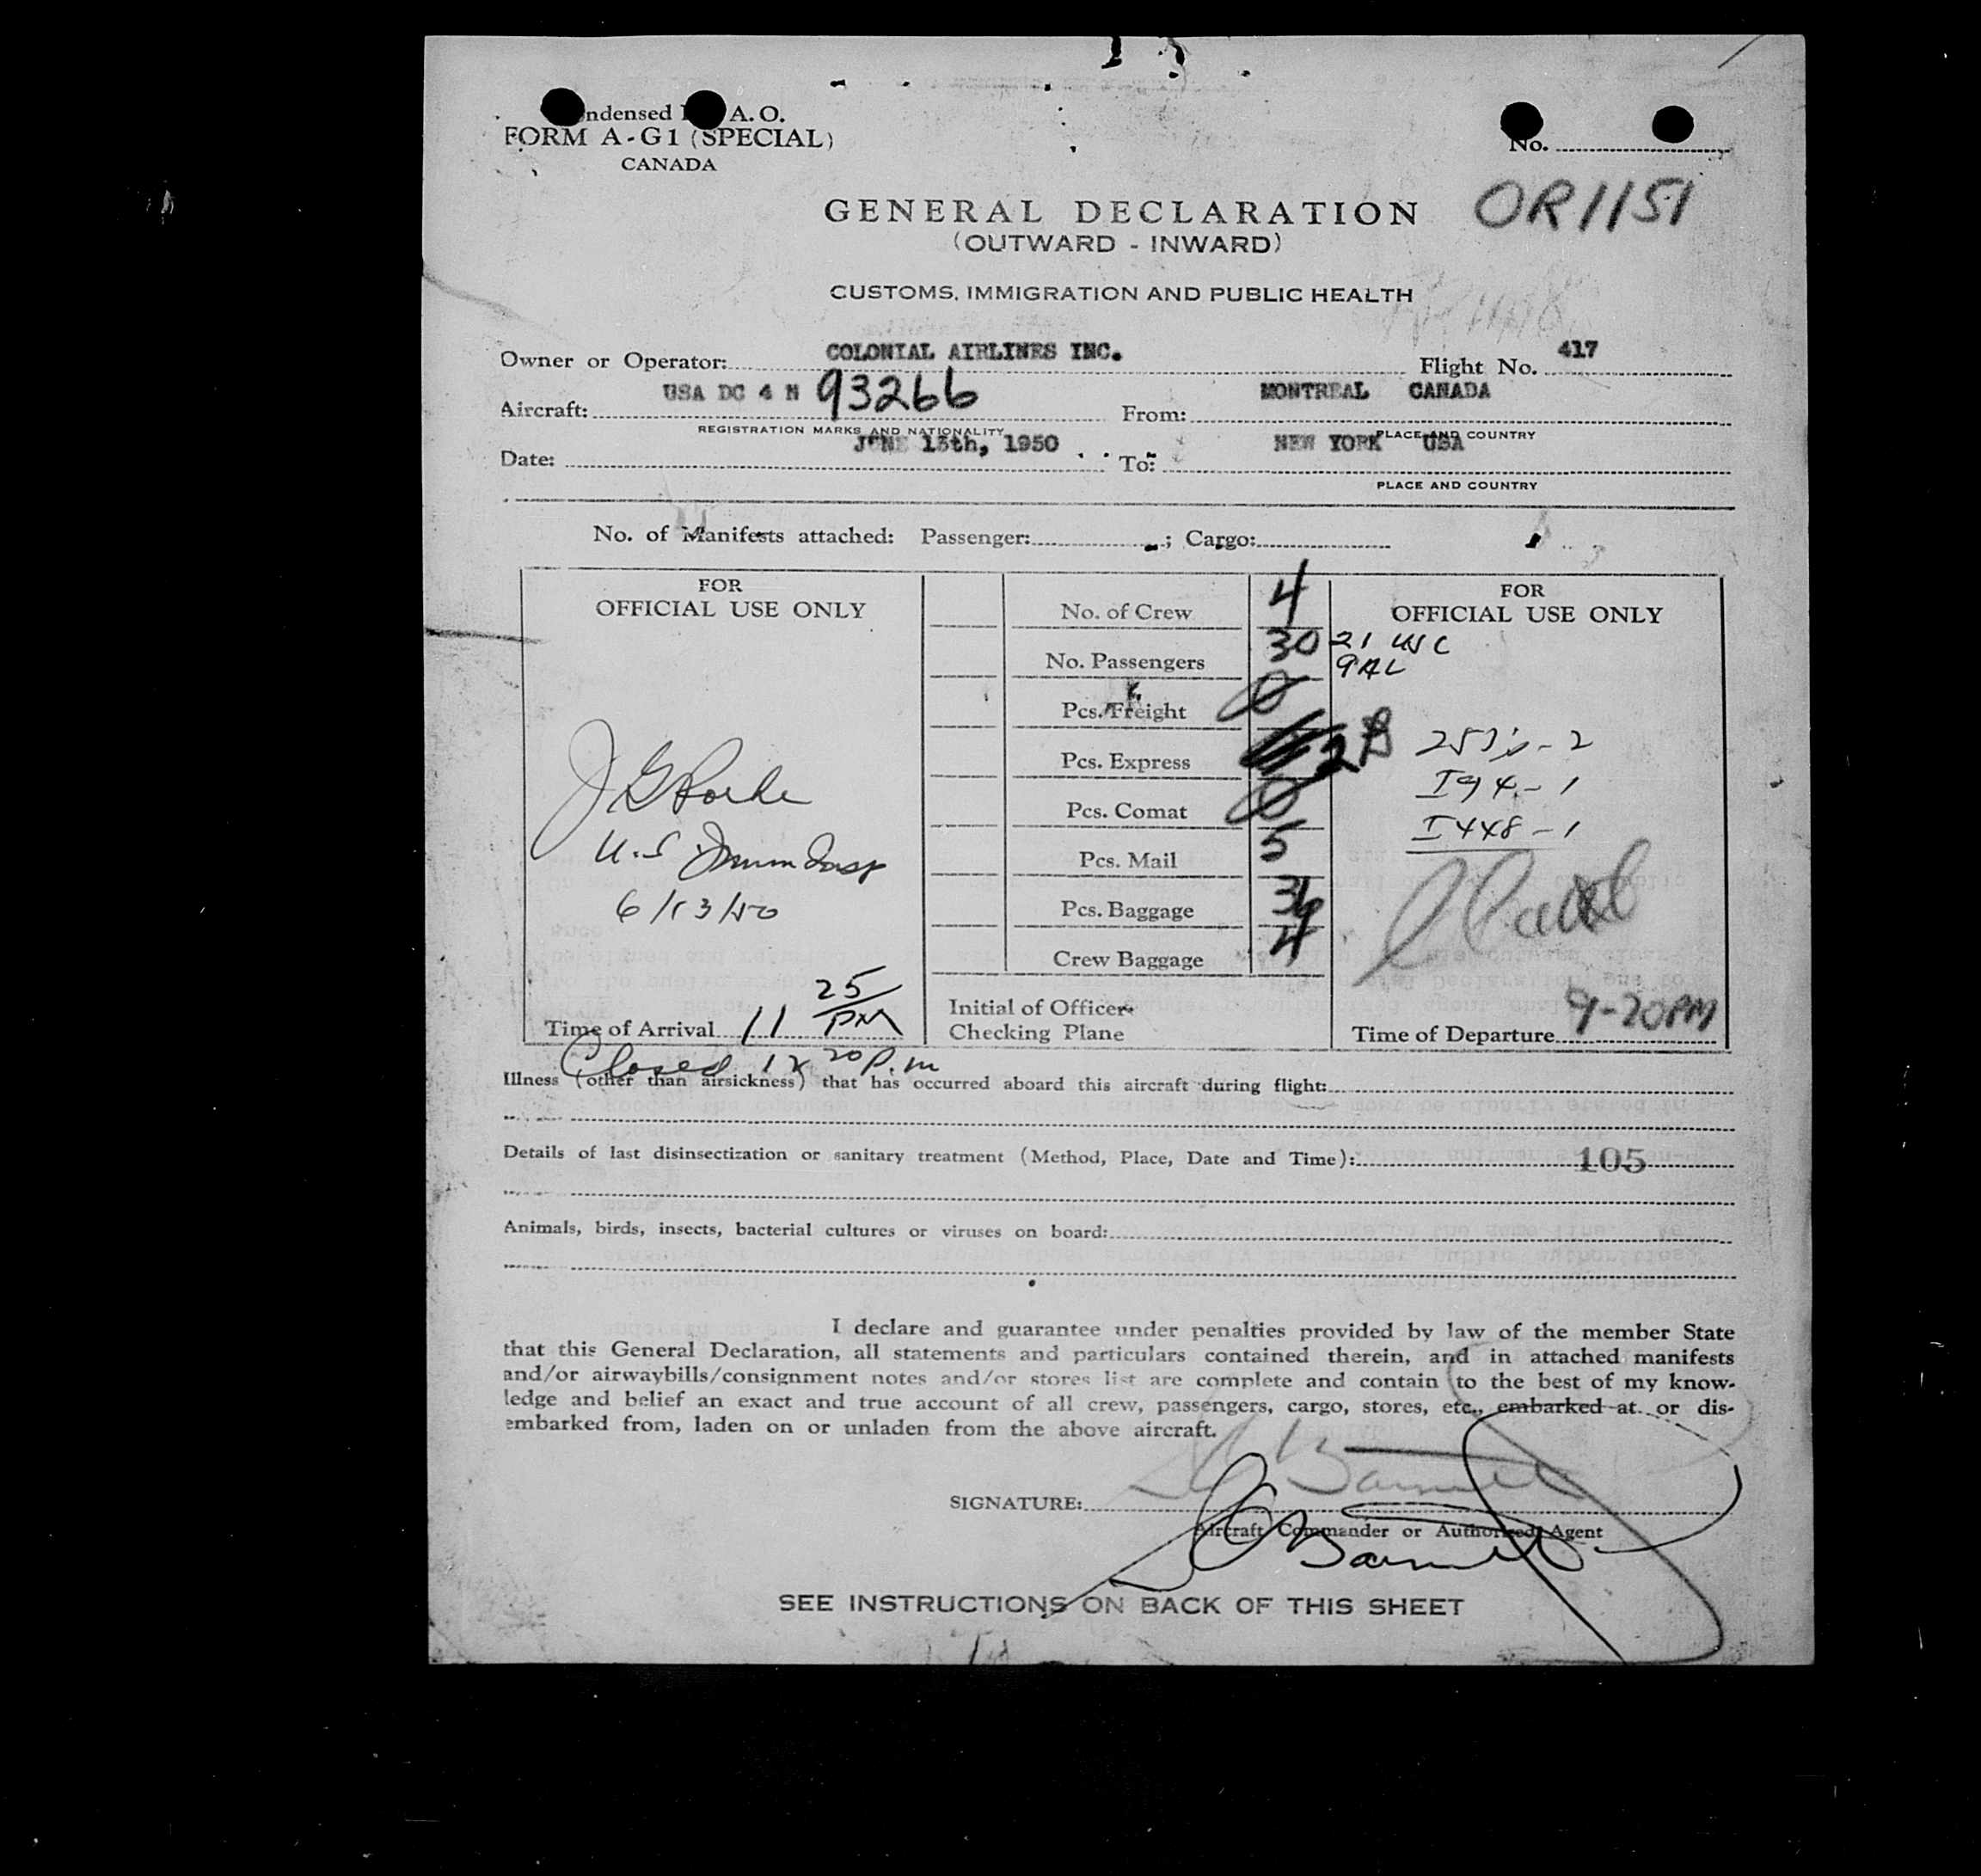 ndensed A. O.
FORM A-G1 (SPECIAL)
CANADA
No.
OR1151
GENERAL DECLARATION
(OUTWARD - INWARD)
CUSTOMS, IMMIGRATION AND PUBLIC HEALTH
Owner or Operator: COLONIAL AIRLINES INC. Flight No. 417
Aircraft: USA DC 4 N 93266 From: MONTREAL CANADA
REGISTRATION MARKS AND NATIONALITY PLACE AND COUNTRY
Date: JUNE 13th, 1950 To: NEW YORK USA
PLACE AND COUNTRY
No. of Manifests attached: Passenger: ; Cargo:
FOR
OFFICIAL USE ONLY
U.S. Immn Insp
6/13/50
Time of Arrival 11 25 PM
Closed 12 20 P.m
No. of Crew 4
No. Passengers 30
Pcs. Freight 0
Pcs. Express 2
Pcs. Comat 0
Pcs. Mail 5
Pcs. Baggage 36
Crew Baggage 4
Initial of Officer
Checking Plane
FOR
OFFICIAL USE ONLY
21 USC
9 AL
I94 - 1
I448 - 1
Time of Departure 9-20PM
Illness (other than airsickness) that has occurred aboard this aircraft during flight:
Details of last disinsectization or sanitary treatment (Method, Place, Date and Time): 105
Animals, birds, insects, bacterial cultures or viruses on board:
I declare and guarantee under penalties provided by law of the member State
that this General Declaration, all statements and particulars contained therein, and in attached manifests
and/or airwaybills/consignment notes and/or stores list are complete and contain to the best of my know-
ledge and belief an exact and true account of all crew, passengers, cargo, stores, etc., embarked at or dis-
embarked from, laden on or unladen from the above aircraft.
SIGNATURE:
Aircraft Commander or Authorized Agent
SEE INSTRUCTIONS ON BACK OF THIS SHEET